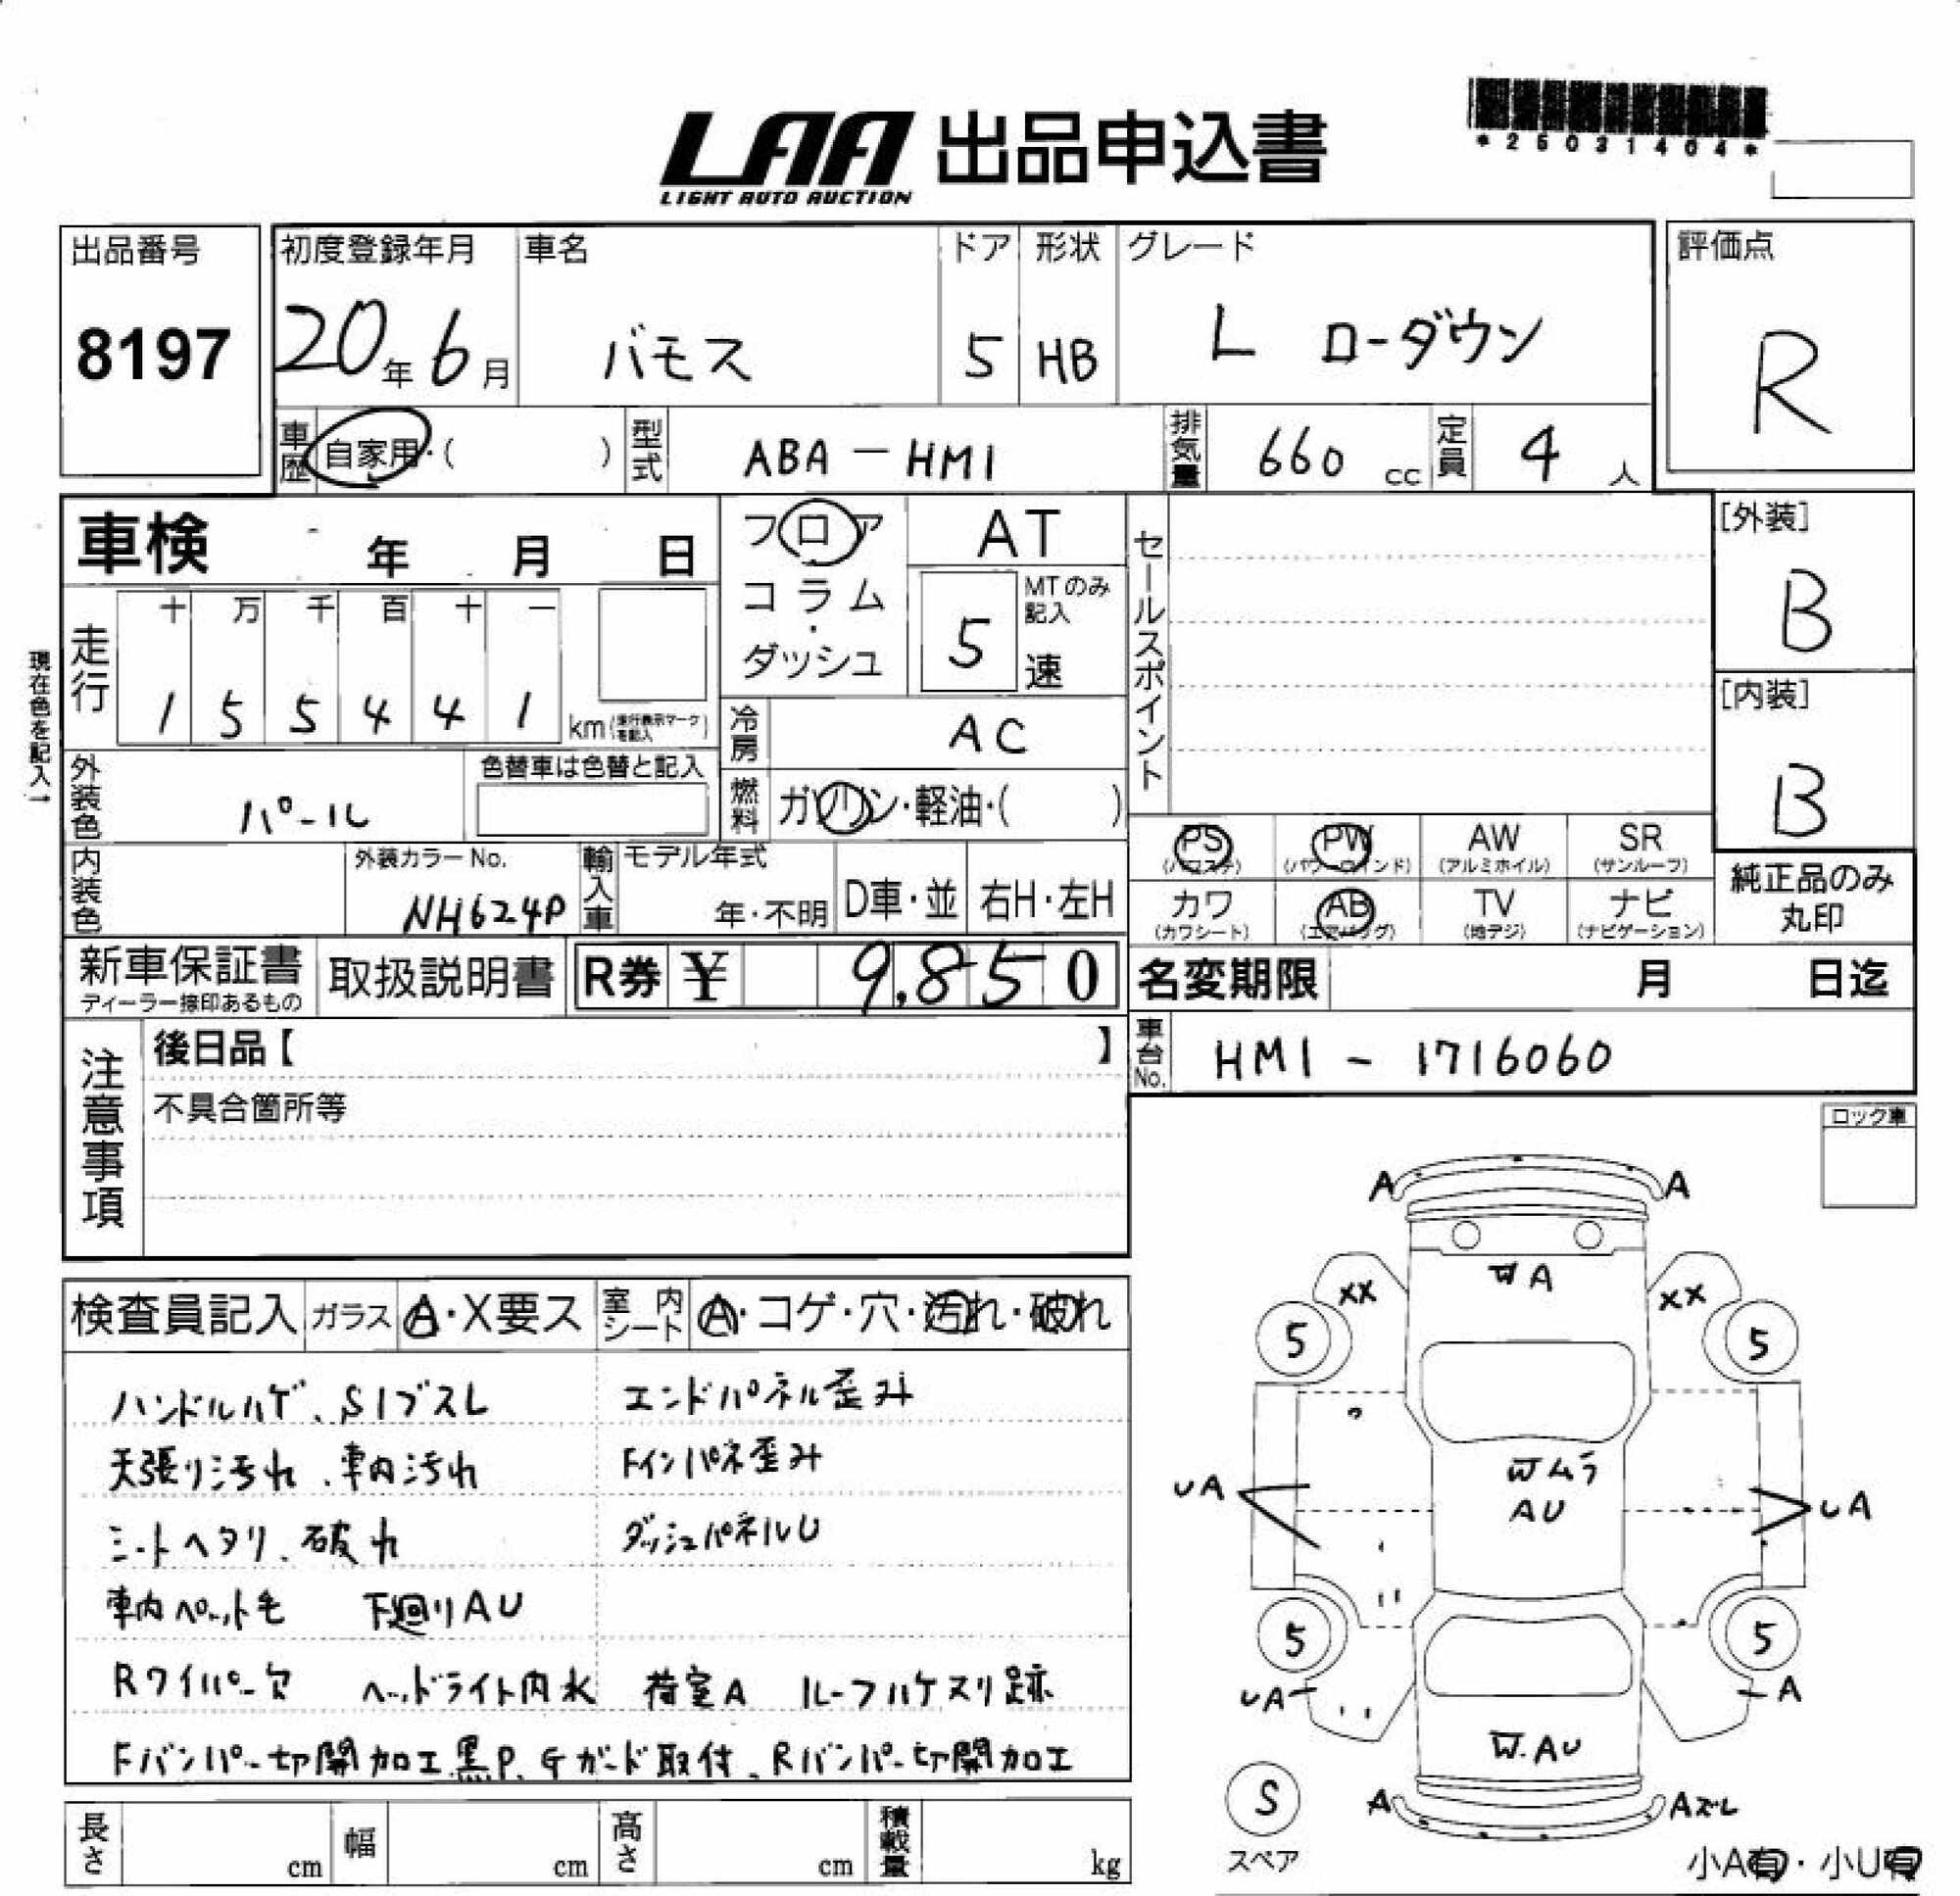 LAA 出品申込書
LIGHT AUTO AUCTION
*25031404*
出品番号
8197
初度登録年月
20年6月
車名
バモス
ドア
5
形状
HB
グレード
L ローダウン
評価点
R
車歴 自家用・( )
型式 ABA-HM1
排気量 660 cc
定員 4 人
車検 年 月 日
フロア
コラム
・
ダッシュ
AT
5
MTのみ
記入
速
セールスポイント
[外装]
B
[内装]
B
現在色を記入→
走行
十 万 千 百 十 一
1 5 5 4 4 1 km(走行表示マークを記入)
冷房 AC
外装色 パール
色替車は色替と記入
燃料 ガソリン・軽油・( )
内装色
外装カラーNo.
NH624P
輸入車
モデル年式
年・不明
D車・並
右H・左H
PS
(パワステ)
PW
(パワーウインド)
AW
(アルミホイル)
SR
(サンルーフ)
カワ
(カワシート)
AB
(エアバッグ)
TV
(地デジ)
ナビ
(ナビゲーション)
純正品のみ
丸印
新車保証書
ディーラー捺印あるもの
取扱説明書
R券 ¥ 9,850
名変期限 月 日迄
車台No. HM1-1716060
注意事項
後日品【 】
不具合箇所等
ロック車
検査員記入 ガラス A・X要ス 室内シート A・コゲ・穴・汚れ・破れ
ハンドルハゲ、SIブスレ エンドパネル歪み
天張り汚れ、車内汚れ Fインパネ歪み
シートヘタリ、破れ ダッシュパネルU
車内ペット毛 下廻りAU
Rワイパー欠 ヘッドライト内水 荷室A ルーフハケヌリ跡
Fバンパー切開加工黒P、Gガード取付、Rバンパー切開加工
A A
WA
XX XX
5 5
Wムラ
AU
UA UA
5 5
UA A
W.AU
S
スペア
A Aズレ
小A有・小U有
長さ cm
幅 cm
高さ cm
積載量 kg